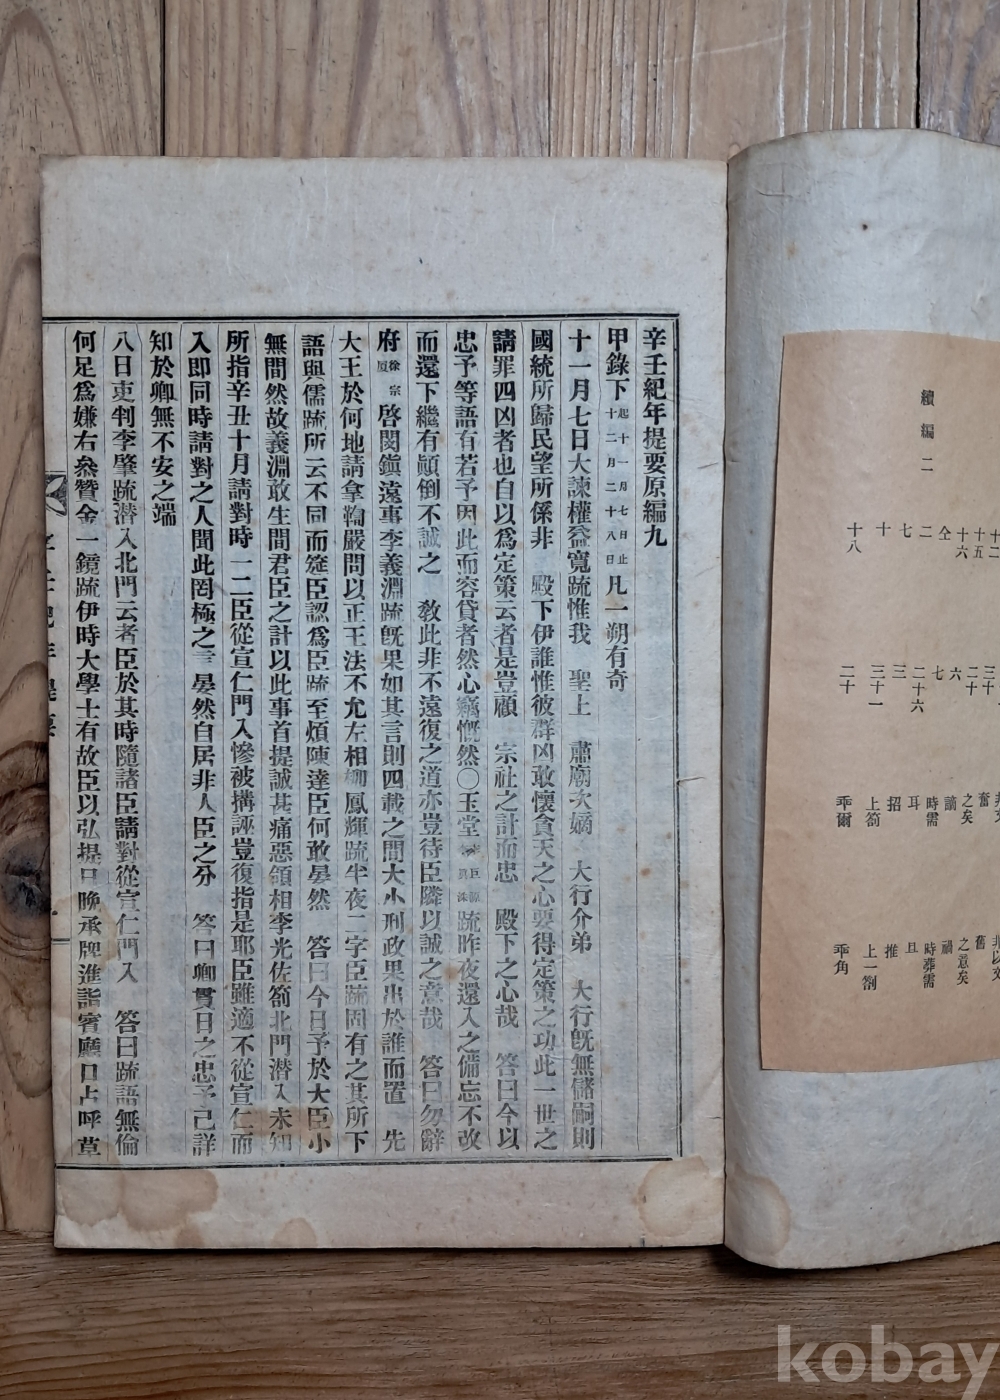 辛壬紀年提要原編九
甲錄下 起十一月七日止十二月二十八日 凡一朔有奇
十一月七日大諫權益寬疏惟我 聖上 肅廟次嫡 大行介弟 大行旣無儲嗣則
國統所歸民望所係非 殿下伊誰惟彼群凶敢懷貪天之心要得定策之功此一世之
請罪四凶者也自以爲定策云者是豈顧 宗社之計而忠 殿下之心哉 答曰今以
忠予等語有若予因此而容貸者然心竊慨然○玉堂 疏昨夜還入之備忘不改
而還下繼有顚倒不誠之 敎此非不遠復之道亦豈待臣隣以誠之意哉 答曰勿辭
府 徐宗厦 啓閔鎭遠事李義淵疏旣果如其言則四載之間大小刑政果出於誰而置 先
大王於何地請拿鞫嚴問以正王法不允左相柳鳳輝疏半夜二字臣疏固有之其所下
語與儒疏所云不同而筵臣認爲臣疏至煩陳達臣何敢晏然 答曰今日予於大臣小
無間然故義淵敢生間君臣之計以此事首提誠甚痛惡領相李光佐箚北門潛入未知
所指辛丑十月請對時一二臣從宣仁門入慘被搆誣豈復指是耶臣雖適不從宣仁而
入卽同時請對之人聞此罔極之言晏然自居非人臣之分 答曰卿貫日之忠予已詳
知於卿無不安之端
八日吏判李肇疏潛入北門云者臣於其時隨諸臣請對從宣仁門入 答曰疏語無倫
何足爲嫌右參贊金一鏡疏伊時大學士有故臣以弘提口晩承牌進詣賓廳口占呼草
續編二
十五
十六
仝
二
七
十
十八
二十
六
七
二十六
三
三十一
二十
奮
之矣
謫
時需
耳
招
上箚
乖爾
舊
之意矣
禎
時葬需
且
推
上一箚
乖角
kobay